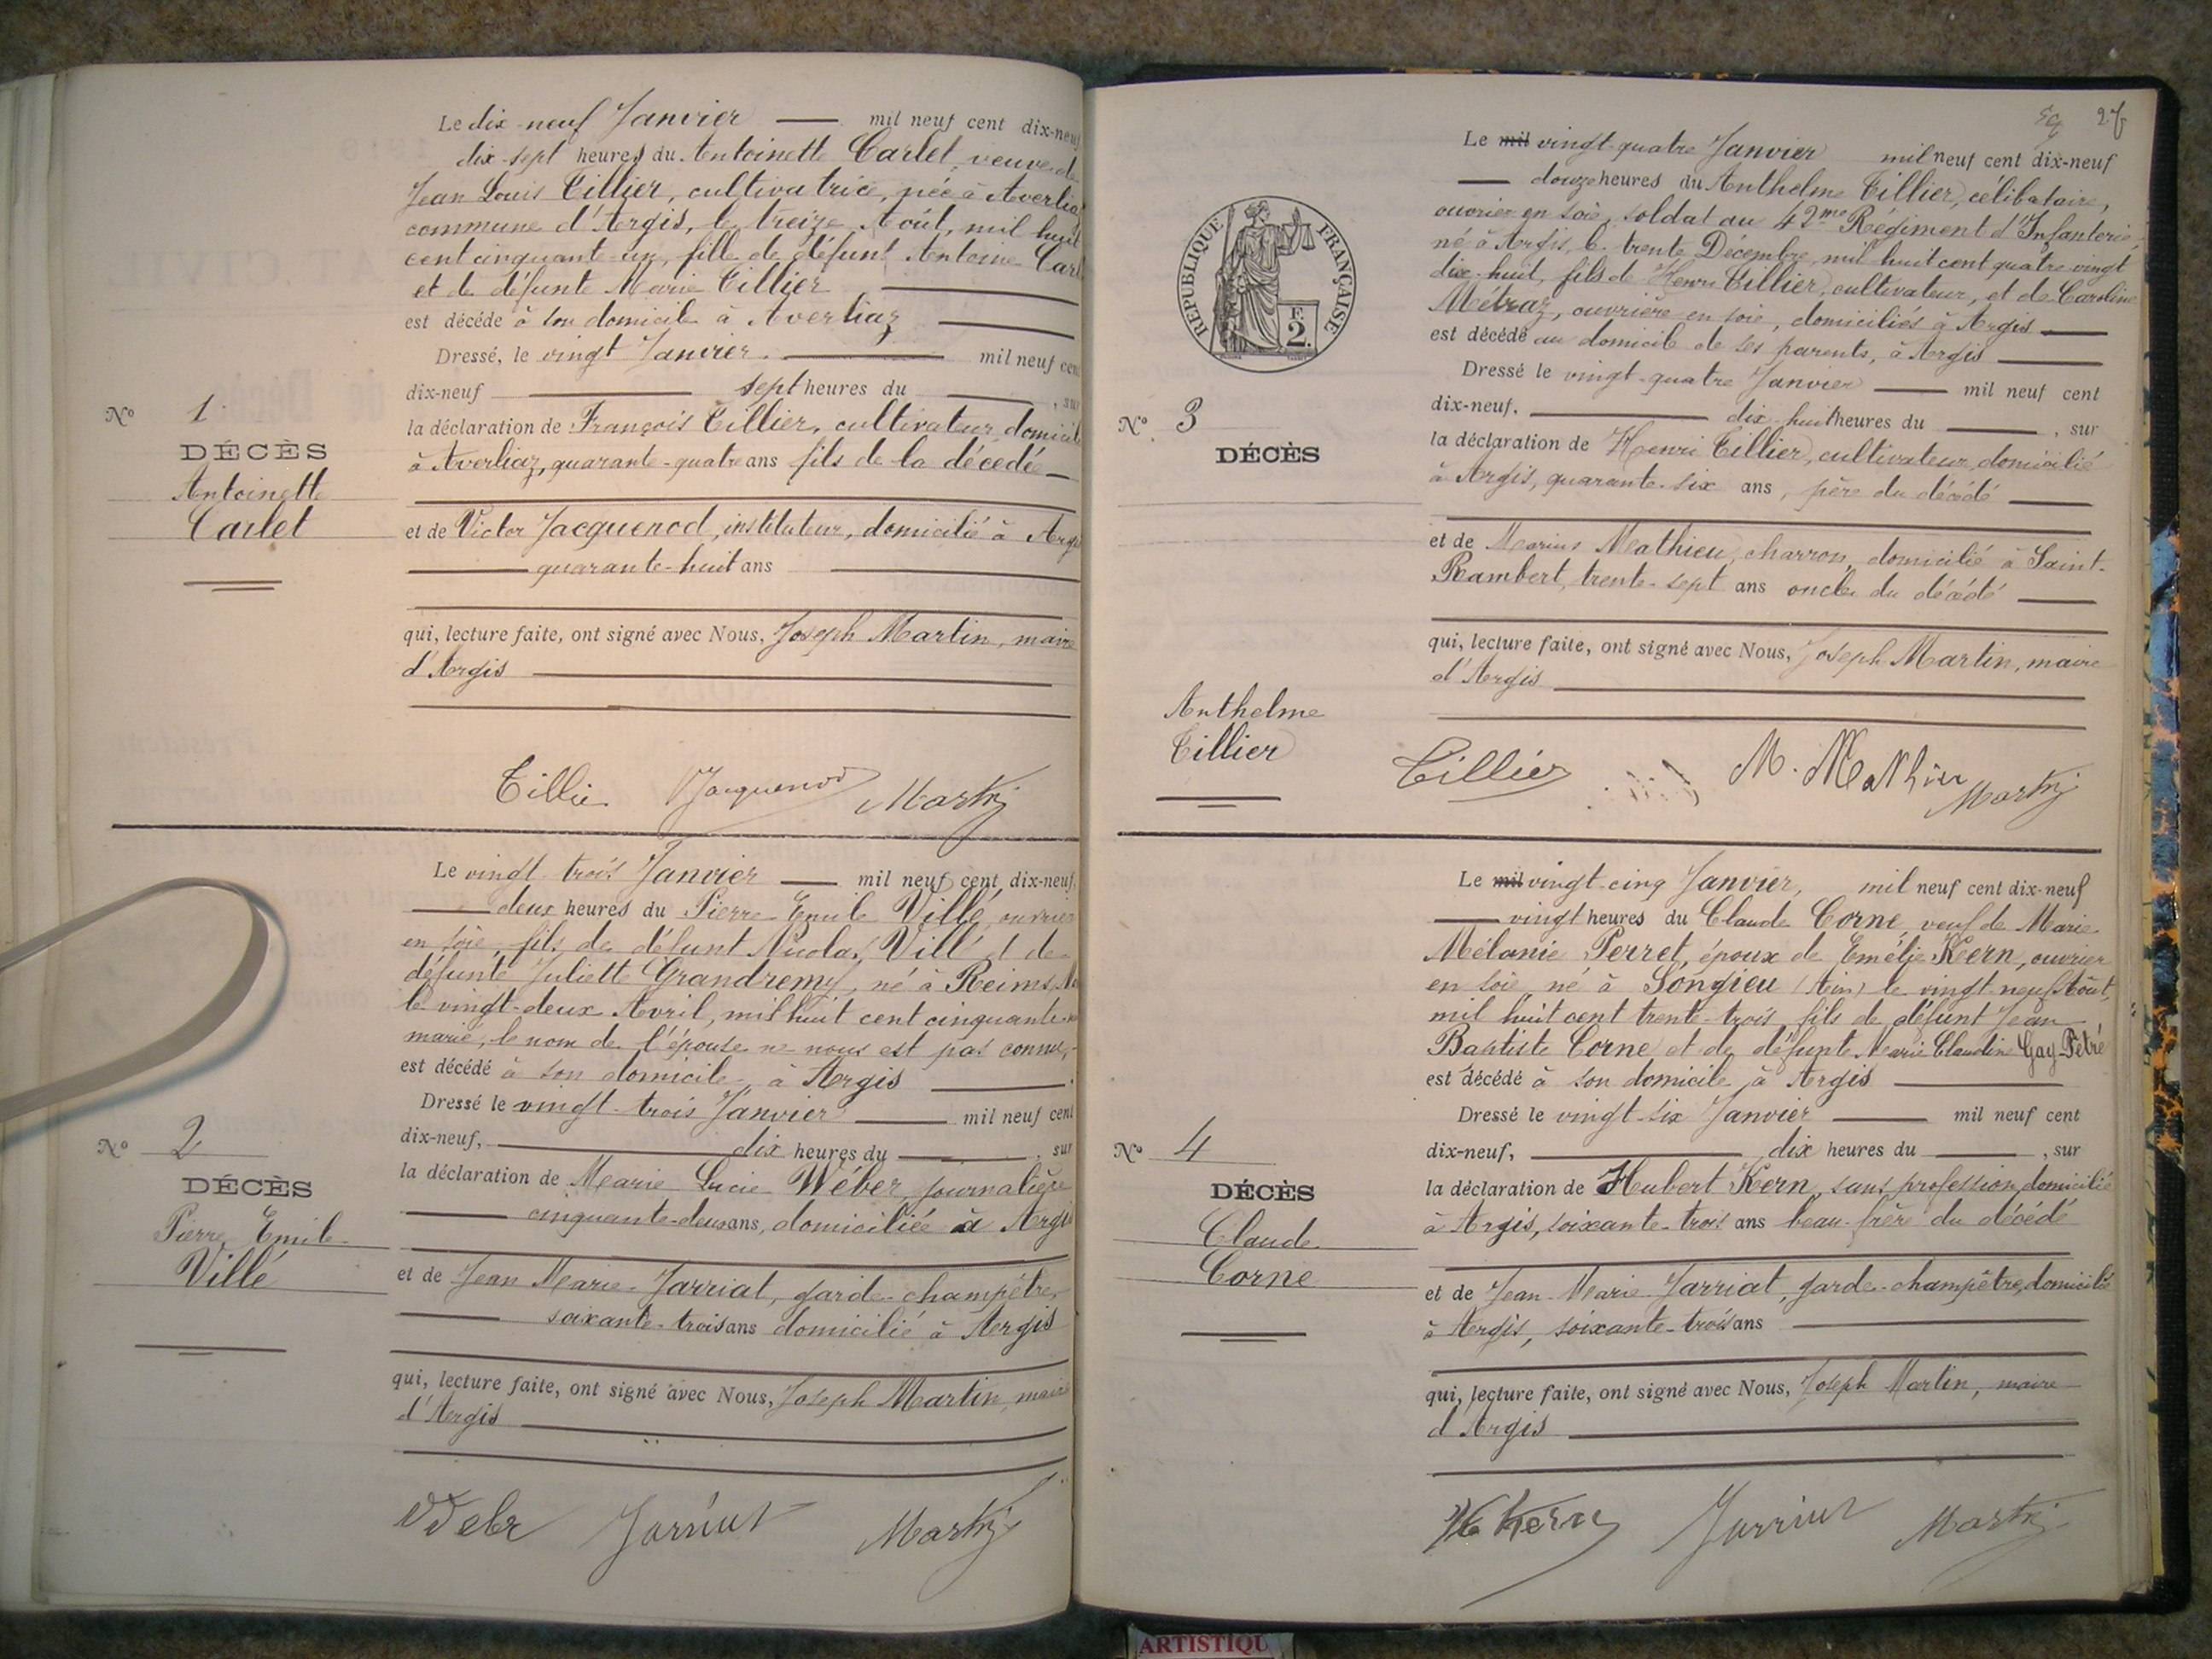 Le dix-neuf Janvier mil neuf cent dix-neuf
dix-sept heures du Antoinette Carlet, veuve de
Jean Louis Tillier, cultivatrice, née à Averliaz
commune d'Argis, le treize Août, mil huit
cent cinquante-un, fille de défunt Antoine Carlet
et de défunte Marie Tillier
est décédé à son domicile à Averliaz
Dressé, le vingt Janvier mil neuf cent
dix-neuf sept heures du , sur
la déclaration de François Tillier, cultivateur, domicilié
à Averliaz, quarante-quatre ans fils de la décédée
et de Victor Jacquenod, instituteur, domicilié à Argis
quarante-huit ans
qui, lecture faite, ont signé avec Nous, Joseph Martin, maire
d'Argis
No 1
DÉCÈS
Antoinette
Carlet
Tillie Jacquenod Martin
Le vingt trois Janvier mil neuf cent dix-neuf,
deux heures du Pierre Emile Villé, ouvrier
en soie, fils de défunt Nicolas Villé et de
défunte Juliette Grandremy, né à Reims
le vingt-deux Avril, mil huit cent cinquante
marié, le nom de l'épouse ne nous est pas connu,
est décédé à son domicile, à Argis
Dressé le vingt-trois Janvier mil neuf cent
dix-neuf, dix heures du , sur
la déclaration de Marie Lucie Wéber, journalière
cinquante-deux ans, domiciliée à Argis
et de Jean Marie Jarriat, garde-champêtre,
soixante-trois ans domicilié à Argis
qui, lecture faite, ont signé avec Nous, Joseph Martin, maire
d'Argis
No 2
DÉCÈS
Pierre Emile
Villé
Webr Jarriat Martin
27
Le mil vingt-quatre Janvier mil neuf cent dix-neuf
douze heures du Anthelme Tillier, célibataire,
ouvrier en soie, soldat au 42me Régiment d'Infanterie,
né à Argis, le trente Décembre, mil huit cent quatre vingt
dix-huit, fils de Henri Tillier, cultivateur, et de Caroline
Métraz, ouvrière en soie, domiciliés à Argis
est décédé au domicile de ses parents, à Argis
Dressé le vingt-quatre Janvier mil neuf cent
dix-neuf, dix-huit heures du , sur
la déclaration de Henri Tillier, cultivateur, domicilié
à Argis, quarante-six ans, père du décédé
et de Marius Mathieu, charron, domicilié à Saint-
Rambert, trente-sept ans oncle du décédé
qui, lecture faite, ont signé avec Nous, Joseph Martin, maire
d'Argis
RÉPUBLIQUE FRANÇAISE
F.
2.
No 3
DÉCÈS
Anthelme
Tillier
Tillier M. Mathieu Martin
Le mil vingt-cinq Janvier, mil neuf cent dix-neuf
vingt heures du Claude Corne, veuf de Marie
Mélanie Perret, époux de Emélie Kern, ouvrier
en soie, né à Songieu (Ain) le vingt-neuf Août,
mil huit cent trente-trois, fils de défunt Jean
Baptiste Corne et de défunte Marie Claudine Gay-Pétré
est décédé à son domicile à Argis
Dressé le vingt-six Janvier mil neuf cent
dix-neuf, dix heures du , sur
la déclaration de Hubert Kern, sans profession, domicilié
à Argis, soixante-trois ans beau-frère du décédé
et de Jean-Marie Jarriat, garde-champêtre, domicilié
à Argis, soixante-trois ans
qui, lecture faite, ont signé avec Nous, Joseph Martin, maire
d'Argis
No 4
DÉCÈS
Claude
Corne
H Kern Jarriat Martin
ARTISTIQU